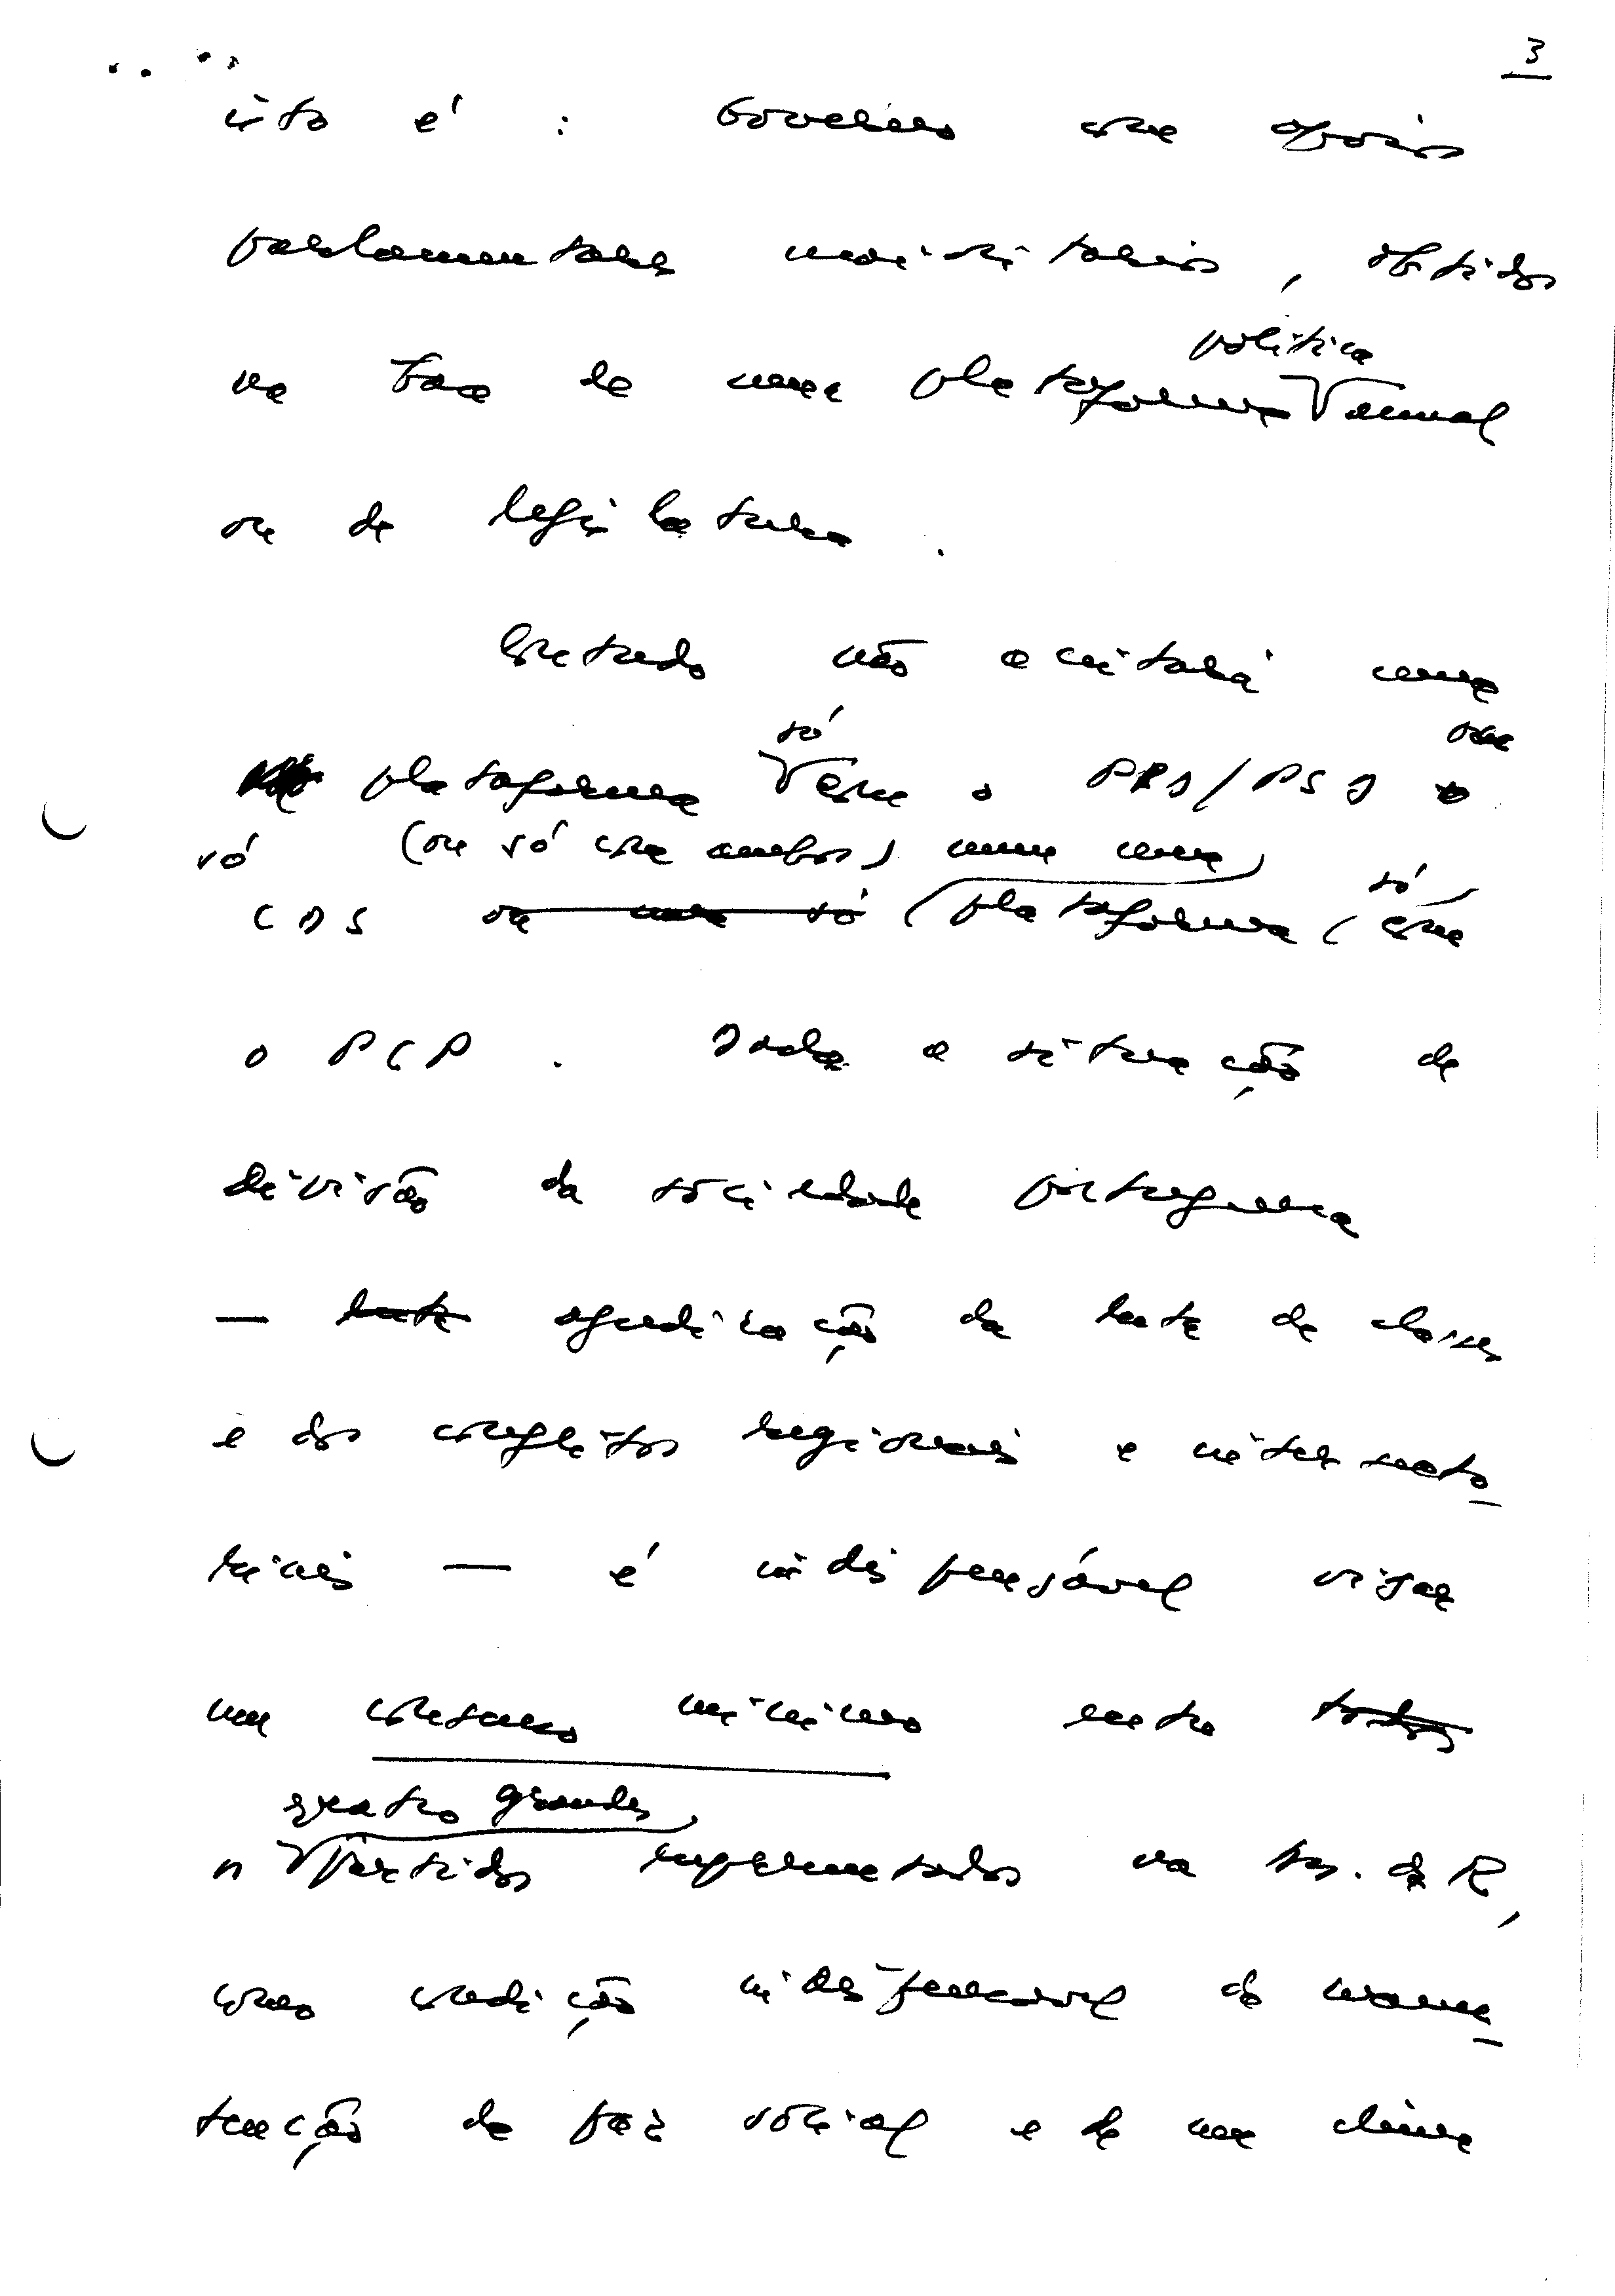 3
isto é : Governo com apoio
parlamentar maioritário, obtido
política
na base de uma plataforma anual
ou de legislatura.
Contudo não aceitará uma
só com
plataforma com o PPD/PSD o
só (ou só com ambos) nem uma
só
CDS ou uma só plataforma (com
o PCP. Dada a situação de
divisão da sociedade portuguesa
— luta agudização da luta de classes
e dos conflitos regionais e intersecto-
riais — é indispensável visar
um consenso mínimo entre todos
quatro grandes
os partidos representados na Ass. da R,
como condição indispensável da manu-
tenção da paz social e de um clima